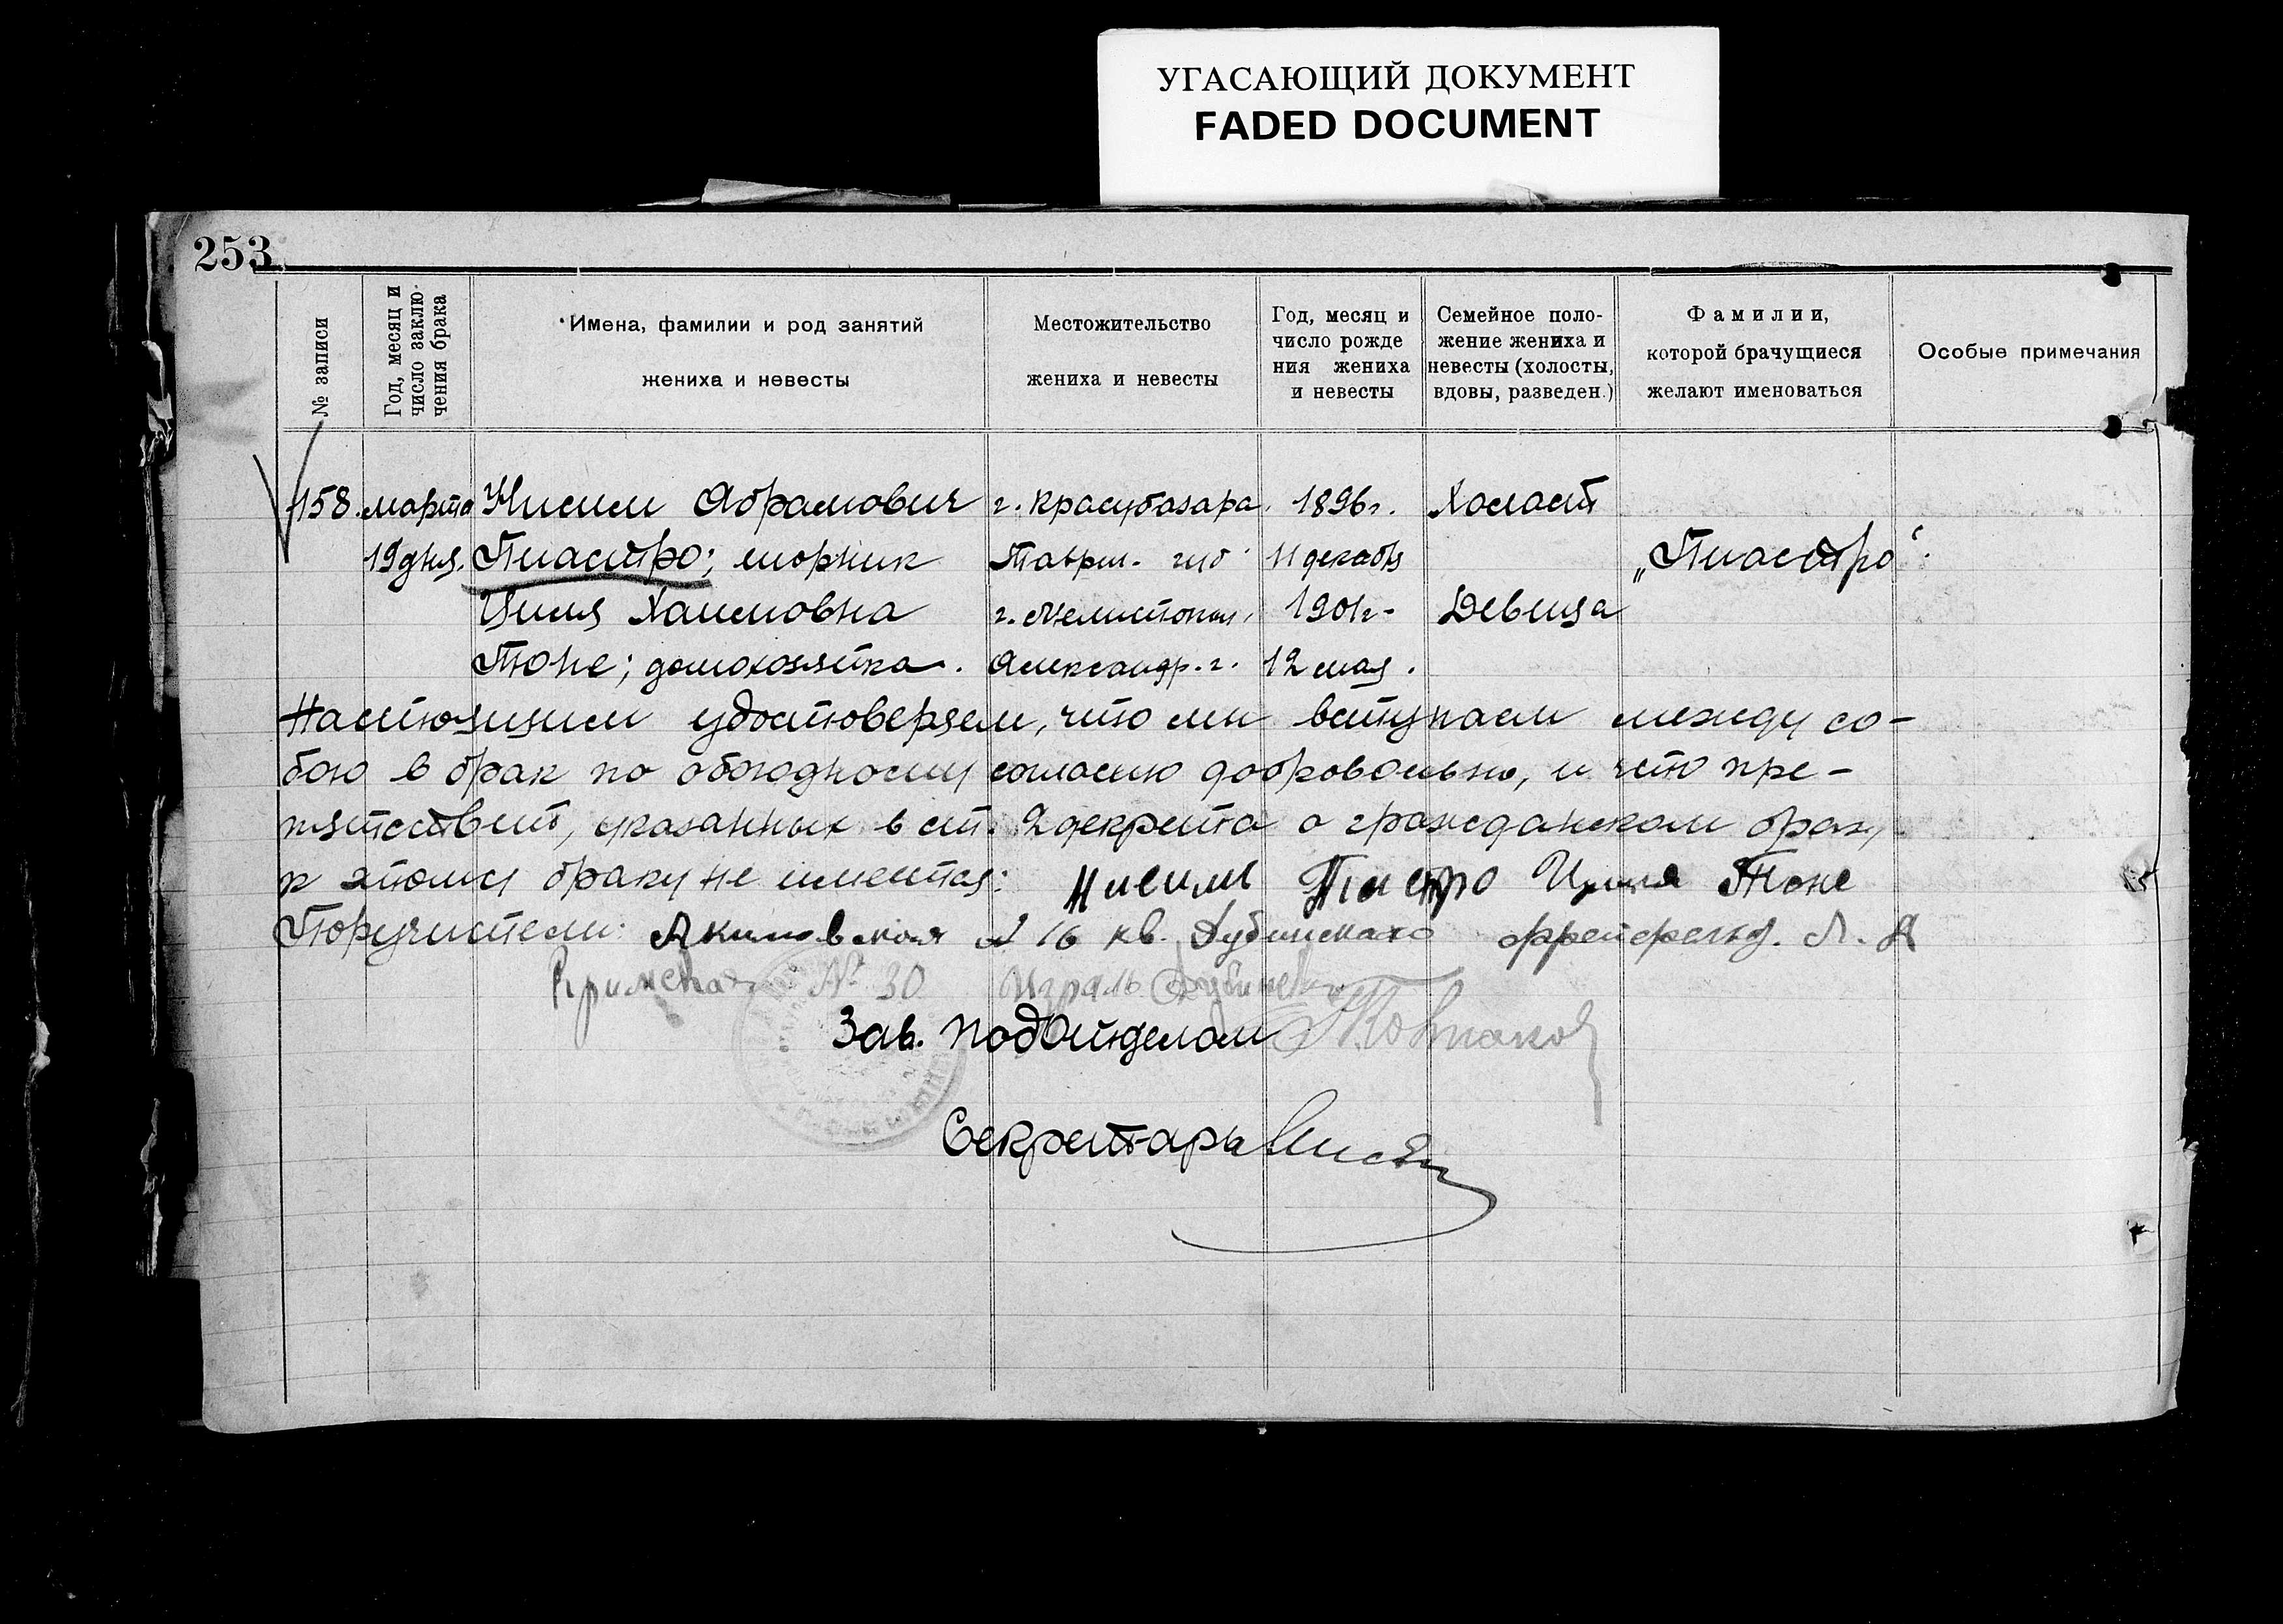 УГАСАЮЩИЙ ДОКУМЕНТ
FADED DOCUMENT
253
№ записи
Год, месяц и
число заклю-
чения брака
Имена, фамилии и род занятий
жениха и невесты
Местожительство
жениха и невесты
Год, месяц и
число рожде
ния жениха
и невесты
Семейное поло-
жение жениха и
невесты (холосты,
вдовы, разведен.)
Фамилии,
которой брачущиеся
желают именоваться
Особые примечания
158. марта Нисим Абрамович г. Красубазара. 1896г. Холост
19 дня. Пиастро; шорник Таврич. губ 11 декабр „Пиастро“.
Циля Хаимовна г. Мелитополь, 1901г. Девица
Тюне; домохозяйка. Александр. г. 12 мая.
Настоящим удостоверяем, что мы вступаем между со-
бою в брак по обоюдному согласию добровольно, и что пре-
пятствий, указанных в ст. 2 декрета о гражданском браке,
к этому браку не имеется: Нисим Пиастро Циля Тюне
Поручители: Акимовская № 16 кв. Дубинского Л. А
Крымская № 30 Израль Дубинский
Зав. Подотделом
Секретарь